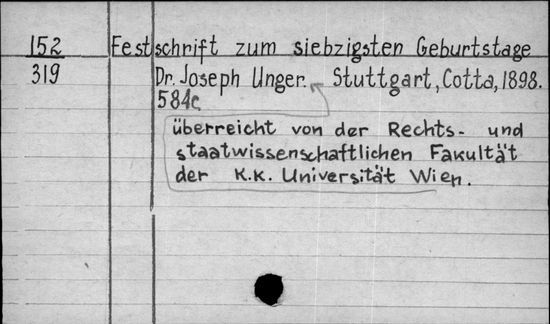 152 Festschrift zum siebzigsten Geburtstage
319 Dr. Joseph Unger. Stuttgart, Cotta, 1898.
584c
überreicht von der Rechts- und
staatwissenschaftlichen Fakultät
der K.K. Universität Wien.